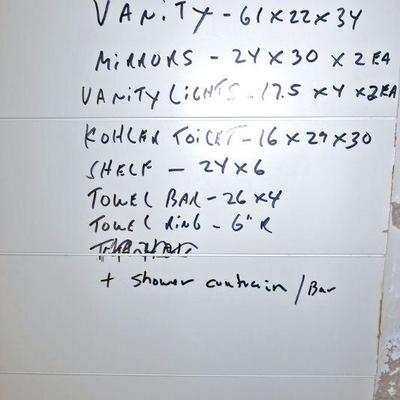 VANITY - 61 x 22 x 34
MIRRORS - 24 x 30 x 2 EA
VANITY LIGHTS - 17.5 x 4 x 2EA
KOHLER TOILET - 16 x 29 x 30
SHELF - 24 x 6
TOWEL BAR - 26 x 4
TOWEL RING - 6" R
+ shower curtain / Bar